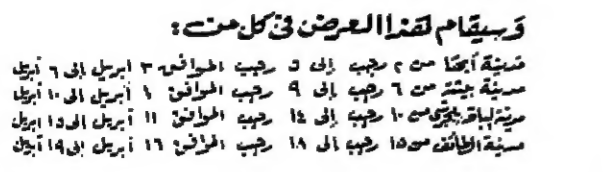 وسيقام لهذا العرض في كل من :
مدينة أبها من ٢ رجب إلى ٥ رجب الموافق ٣ ابريل إلى ٦ أبريل
مدينة بيشة من ٦ رجب إلى ٩ رجب الموافق ٧ أبريل إلى ١٠ أبريل
مدينة لباقه بلجرشي من ١٠ رجب إلى ١٤ رجب الموافق ١١ أبريل إلى ١٥ ابريل
مدينة الطائف من ١٥ رجب إلى ١٨ رجب الموافق ١٦ أبريل إلى ١٩ أبريل